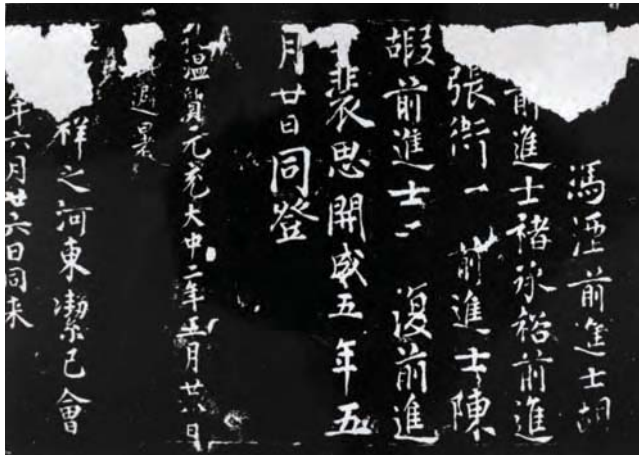 馮涯前進士胡
前進士褚承裕前進
張衛一 前進士陳
嘏前進士 復前進
裴思開成五年五
月廿日同登
溫質元亮大中二年五月廿八日
退
祥之河東潔己會
年六月廿六日同来